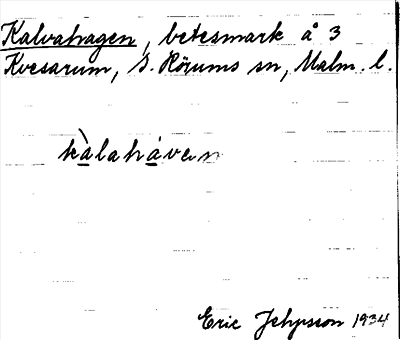 Kalvahagen, betesmark å 3
Kvesarum, S. Rörums sn, Malm. l.
kàlaháven
Eric Jehpsson 1934